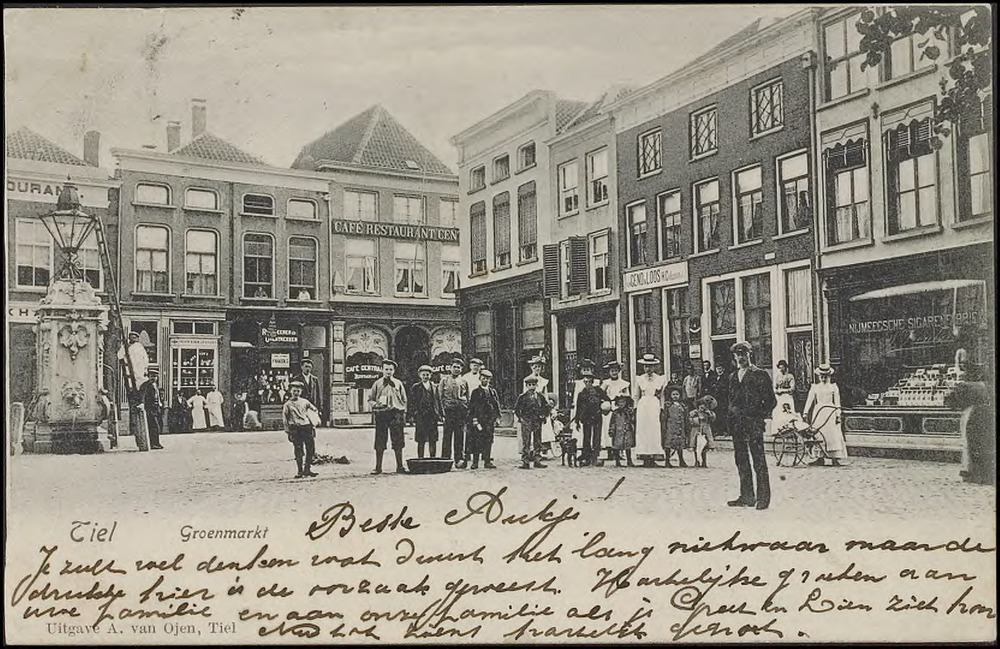 OURAN
CAFÉ RESTAURANT CEN
CAFÉ CENTRAL
RESTAURANT
CAFÉ
GEND & LOOS
NIJMEEGSCHE SIGARENFABRIE
Tiel Groenmarkt Beste Ankje!
Je zult wel denken wat duurt het lang nietwaar maar de
drukte hier is de oorzaak geweest. Hartelijke groeten aan
uwe familie en aan onze familie als je Greet en Lien ziet
Uitgave A. van Ojen, Tiel
Nu tot ziens hartelijk gegroet.